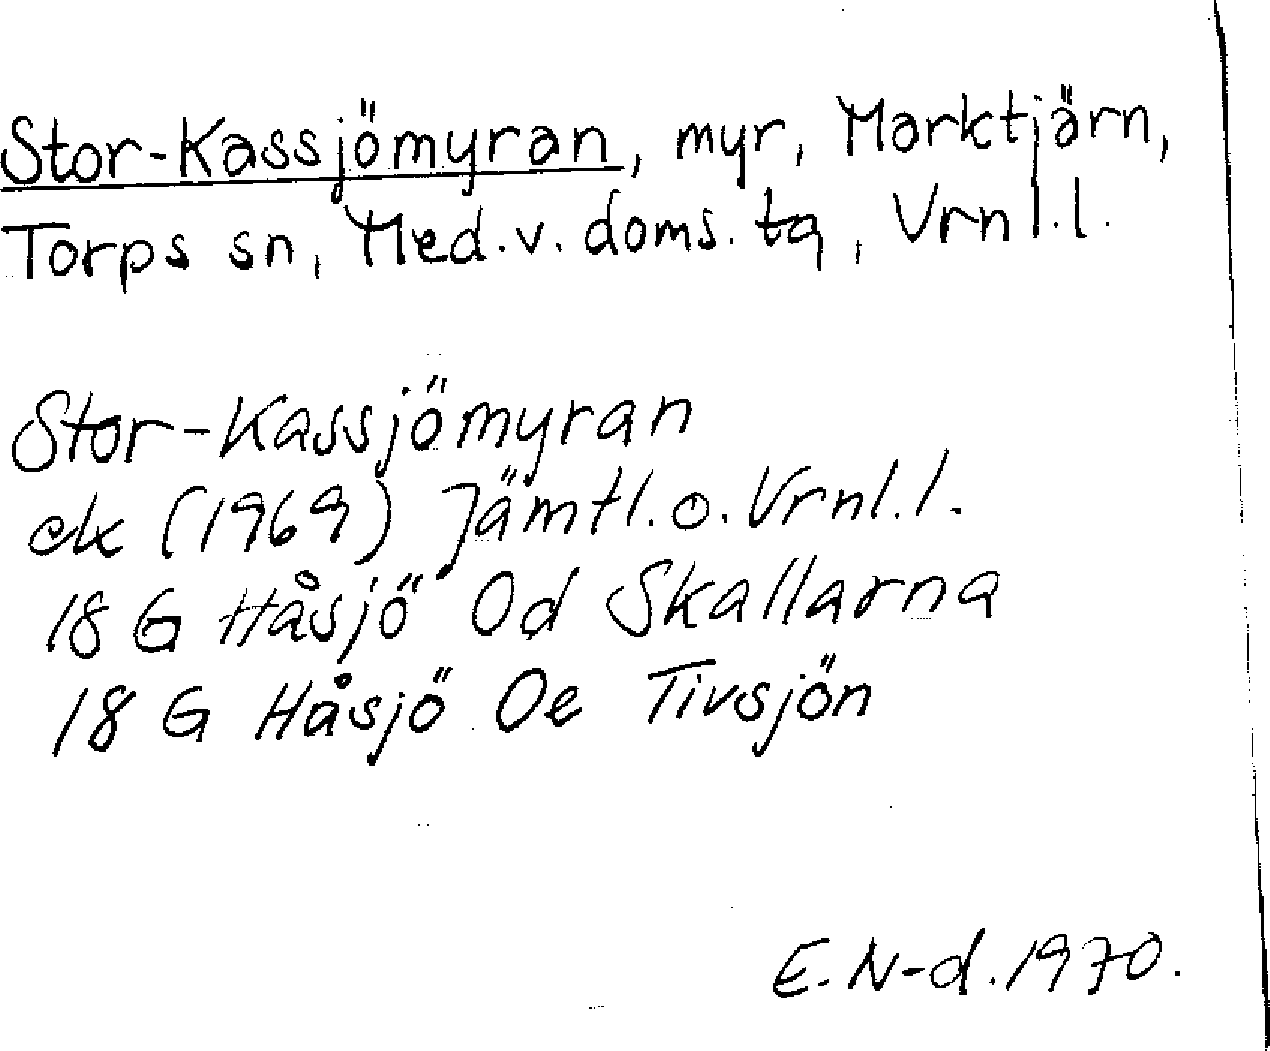 Stor-Kassjömyran, myr, Marktjärn,
Torps sn, Med.v. doms. tg, Vrnl.l.
Stor-Kassjömyran
ek (1969) Jämtl.o.Vrnl.l.
18 G Håsjö Od Skallarna
18 G Håsjö Oe Tivsjön
E.N-d.1970.